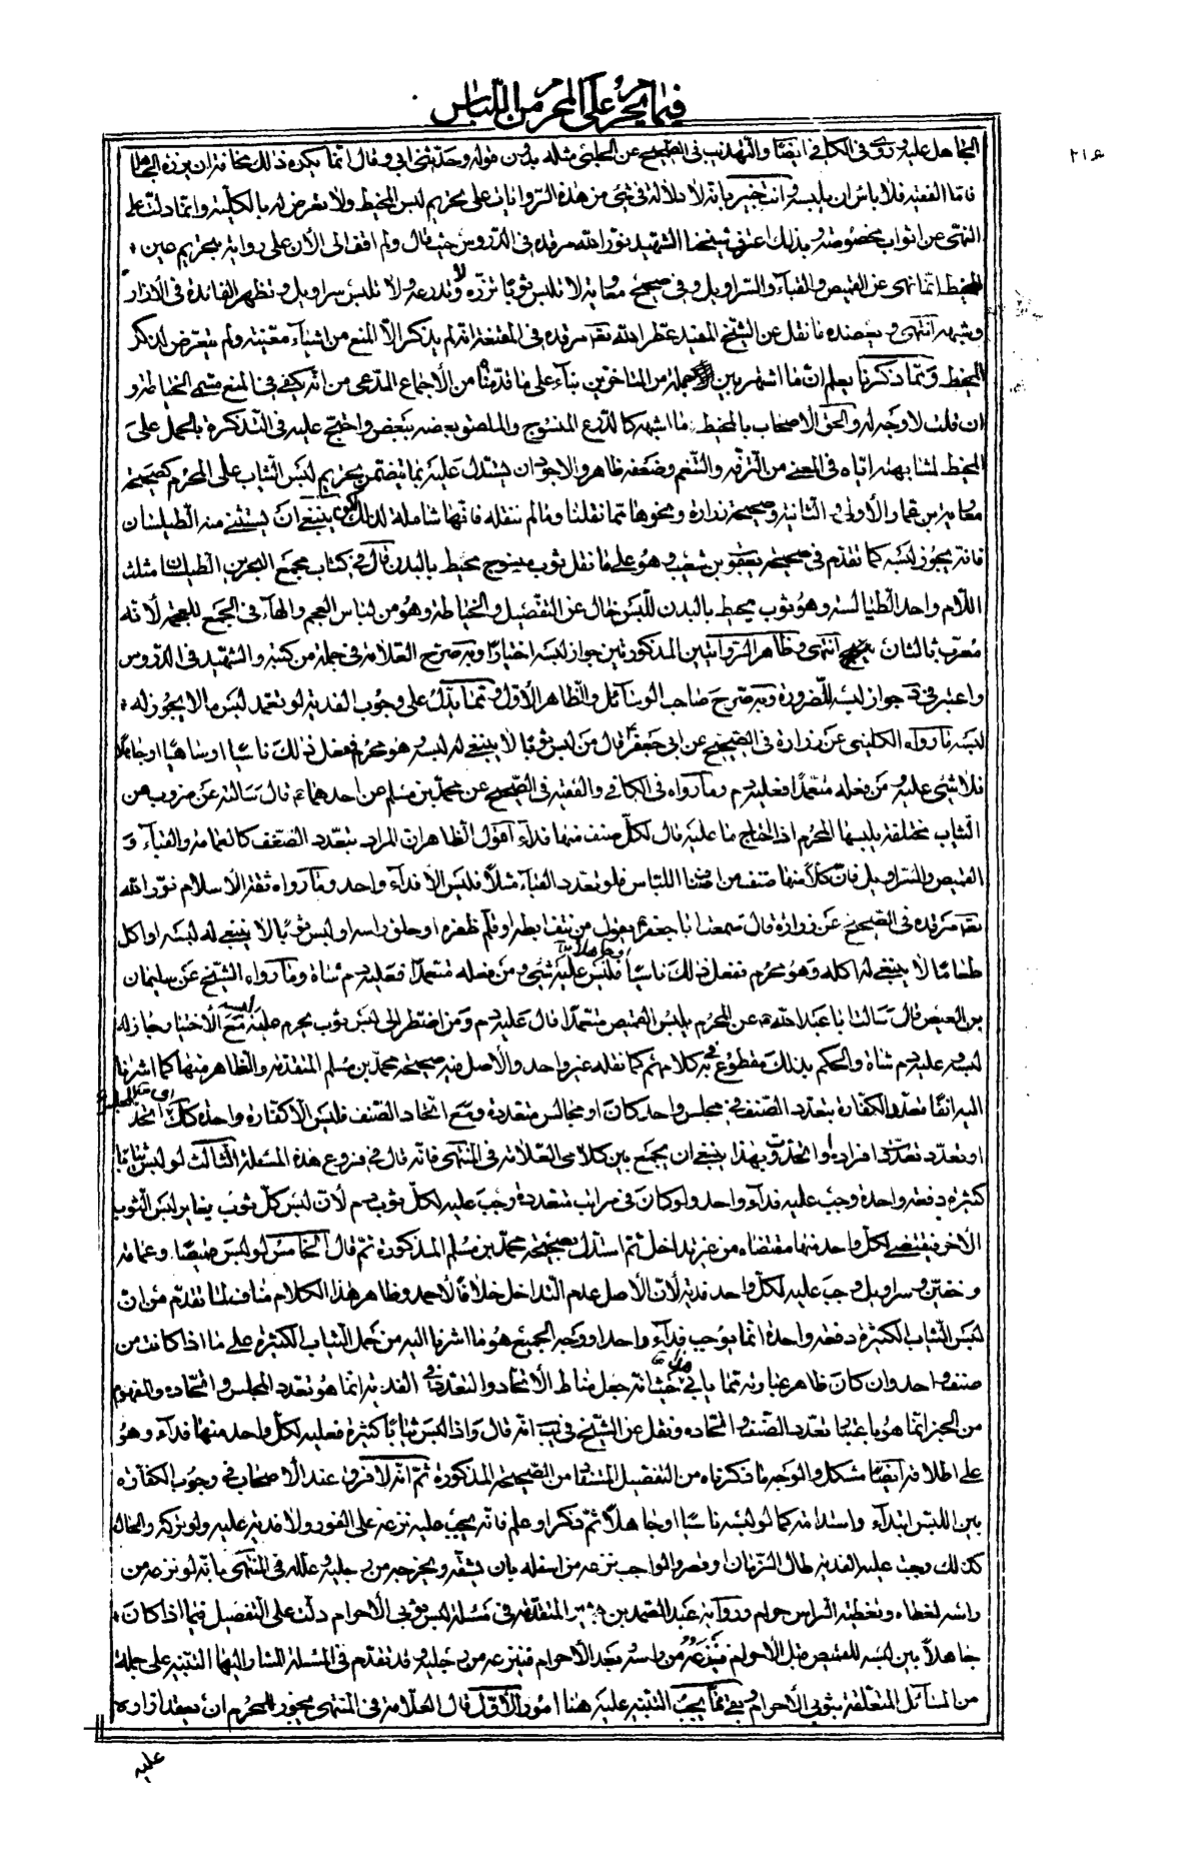 فيما يحرم على المحرم من اللباس
٢١۶
الجاهل عليه وروى فى الكافى ايضا والتهذيب فى الصحيح عن الحلبى مثله بدون قوله وحدثنى ابى وقال انما يكره ذلك مخافة ان يزره الجاهل
فاما الفقيه فلا باس ان يلبسه وانت خبير بانه لا دلالة فى شئ من هذه الروايات على تحريم لبس المخيط ولا تعرض له بالكلية وانما دلت على
النهى عن اثواب مخصوصة وبذلك اعترف شيخنا الشهيد نور الله مرقده فى الدروس حيث قال ولم اقف الى الان على رواية بتحريم عين
المخيط انما نهى عن القميص والقباء والسراويل وفى صحيح معاوية لا تلبس ثوبا تزره ولا تدرعه ولا تلبس سراويل وتظهر الفائدة فى الازار
وشبهه انتهى ويعضده ما نقل عن الشيخ المفيد عطر الله تعا مرقده فى المقنعة انه لم يذكر الا المنع من اشياء معينة ولم يتعرض لذكر
المخيط ومما ذكرنا يعلم ان ما اشتهر بين جملة من المتاخرين بناء على ما قدمنا من الاجماع المدعى من انه يكفى فى المنع مسمى الخياطة و
ان قلت لا وجه له والحق الاصحاب بالمخيط ما اشبهه كالدرع المنسوج والملصق بعضه ببعض واحتج عليه فى التذكرة بالحمل على
المخيط لمشابهته اياه فى المعنى من الترفه والتنعم وضعفه ظاهر والاجود ان يستدل عليه بما يتضمن تحريم لبس الثياب على المحرم كصحيحة
معاوية بن عمار الاولى والثانية وصحيحة زرارة ونحوها مما نقلنا وما لم ننقله فانها شاملة لذلك ينبغى ان يستثنى منه الطيلسان
فانه يجوز لبسه كما تقدم فى صحيحة يعقوب بن شعيب وهو على ما نقل ثوب منسوج محيط بالبدن قال فى كتاب مجمع البحرين الطيلسان مثلث
اللام واحد الطيالسة وهو ثوب يحيط بالبدن للبس خال عن التفصيل والخياطة وهو من لباس العجم والهاء فى الجمع للعجمة لانه
معرب تالشان انتهى وظاهر الروايتين المذكورتين جواز لبسه اختيارا وبه صرح العلامة فى جملة من كتبه والشهيد فى الدروس
واعتبر فى جواز لبسه للضرورة وبه صرح صاحب الوسائل والظاهر الاول ومما يدل على وجوب الفدية لو تعمد لبس ما لا يجوز له
لبسه ما رواه الكلينى عن زرارة فى الصحيح عن ابى جعفر قال من لبس ثوبا لا ينبغى له لبسه وهو محرم ففعل ذلك ناسيا او ساهيا او جاهلا
فلا شئ عليه ومن فعله متعمدا فعليه دم وما رواه فى الكافى والفقيه فى الصحيح عن محمد بن مسلم عن احدهما ع قال سالته عن ضروب من
الثياب مختلفة يلبسها المحرم اذا احتاج ما عليه قال لكل صنف منها فداء اقول الظاهر ان المراد بتعدد الصنف كالعمامة والقباء و
القميص والسراويل فان كلا منها صنف من اصناف اللباس فلو تعدد القباء مثلا فليس الا فداء واحد وما رواه ثقة الاسلام نور الله
تعا مرقده فى الصحيح عن زرارة قال سمعت ابا جعفر ع يقول من نتف ابطه او قلم ظفره او حلق راسه او لبس ثوبا لا ينبغى له لبسه او اكل
طعاما لا ينبغى له اكله وهو محرم ففعل ذلك ناسيا او جاهلا فليس عليه شئ ومن فعله متعمدا فعليه دم شاة وما رواه الشيخ عن سليمان
بن العيص قال سالت ابا عبد الله ع عن المحرم يلبس القميص متعمدا قال عليه دم ومن اضطر الى لبس ثوب يحرم عليه لبسه مع الاختيار جاز له
لبسه وعليه دم شاة والحكم بذلك مقطوع به فى كلامهم كما نقله غير واحد والاصل فيه صحيحة محمد بن مسلم المتقدمة والظاهر منها كما اشرنا
اليه انفا تعدد الكفارة بتعدد الصنف فى مجلس واحد كان او مجالس متعددة ومع اتحاد الصنف فليس الا كفارة واحدة كذلك اتحد
او تعدد تعددت افراده او اتحدت وبهذا ينبغى ان يجمع بين كلامى العلامة فى المنتهى فانه قال فى فروع هذه المسئلة الثالث لو لبس ثيابا
كثيرة دفعة واحدة وجب عليه فداء واحد ولو كان فى مرات متعددة وجب عليه لكل ثوب دم لان لبس كل ثوب يغاير لبس الثوب
الاخر فيقتضى لكل واحد منهما مقتضاه من غير تداخل ثم استدل بصحيحة محمد بن مسلم المذكورة ثم قال الخامس لو لبس قميصا وعمامة
وخفين وسراويل وجب عليه لكل واحد فدية لان الاصل عدم التداخل خلافا لاحمد وظاهر هذا الكلام مناف لما تقدم من ان
لبس الثياب الكثيرة دفعة واحدة انما يوجب فداء واحدا ووجه الجميع هو ما اشرنا اليه من حمل الثياب الكثيرة على ما اذا كانت من
صنف واحد وان كان ظاهر عبارته مما يابى ذلك حيث انه جعل مناط الاتحاد والتعدد فى الفدية انما هو تعدد المجلس واتحاده والمفهوم
من الخبر انما هو باعتبار تعدد الصنف واتحاده ونقل عن الشيخ فى يب انه قال واذا لبس ثيابا كثيرة فعليه لكل واحد منها فداء وهو
على اطلاقه ايضا مشكل والوجه ما ذكرناه من التفصيل المستفاد من الصحيحة المذكورة ثم انه لا فرق عند الاصحاب فى وجوب الكفارة
بين اللبس ابتداء واستدامة كما لو لبسه ناسيا او جاهلا ثم ذكر او علم فانه يجب عليه نزعه على الفور ولا فدية عليه ولو تركه والحال
كذلك وجبت عليه الفدية طال الزمان او قصر والواجب نزعه من اسفله بان يشقه ويخرجه من رجليه وعلله فى المنتهى بانه لو نزعه من
راسه لغطاه وتغطية الراس حرام ورواية عبد الصمد بن بشير المتقدمة فى مسئلة لبس ثوبى الاحرام دلت على التفصيل فيما اذا كان
جاهلا بين لبسه للقميص قبل الاحرام فينزعه من راسه وبعد الاحرام فينزعه من رجليه وقد تقدم فى المسئلة المشار اليها التنبيه على جملة
من المسائل المتعلقة بثوبى الاحرام وبقى مما يجب التنبيه عليه هنا امور الاول قال العلامة فى المنتهى يجوز للمحرم ان يعقد ازاره
عليه